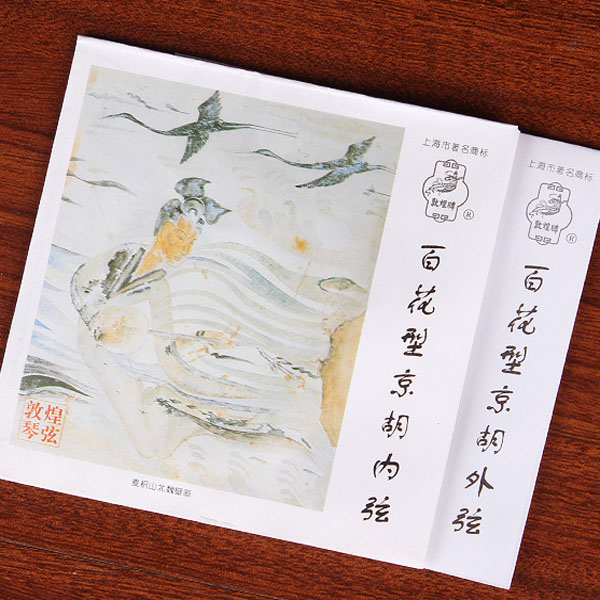 上海市著名商标
敦煌牌
®
百花型京胡内弦
敦煌
琴弦
麦积山北魏壁画
上海市著名商标
敦煌牌
®
百花型京胡外弦